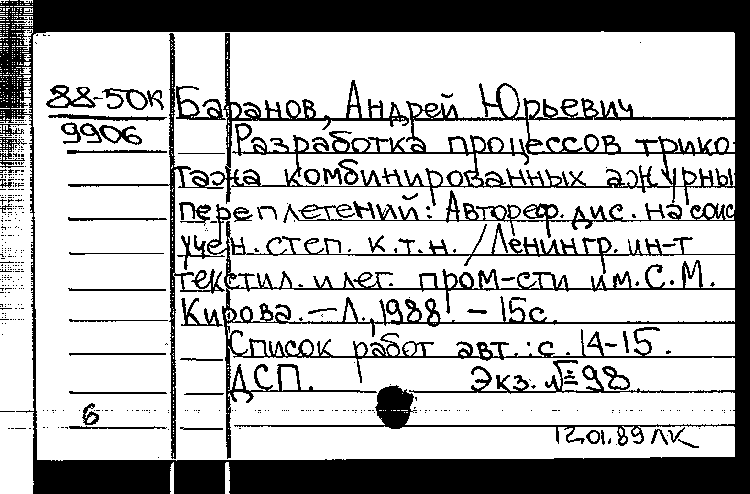 88-50к Баранов, Андрей Юрьевич
9906 Разработка процессов трико
тажа комбинированных ажурны
переплетений: Автореф. дис. на соис
учен. степ. к.т.н. / Ленингр. ин-т
текстил. и лег. пром-сти им. С.М.
Кирова. — Л., 1988. - 15с.
Список работ авт.: с. 14-15.
ДСП. Экз. № 98
6
12.01.89 ЛК